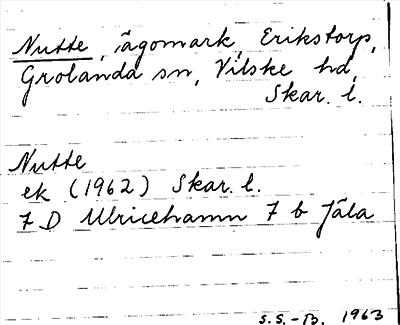 Nutte, ägomark, Erikstorp,
Grolanda sn, Vilske hd,
Skar. l.
Nutte
ek (1962) Skar. l.
7 D Ulricehamn 7 b Jäla
S.S.-B. 1963